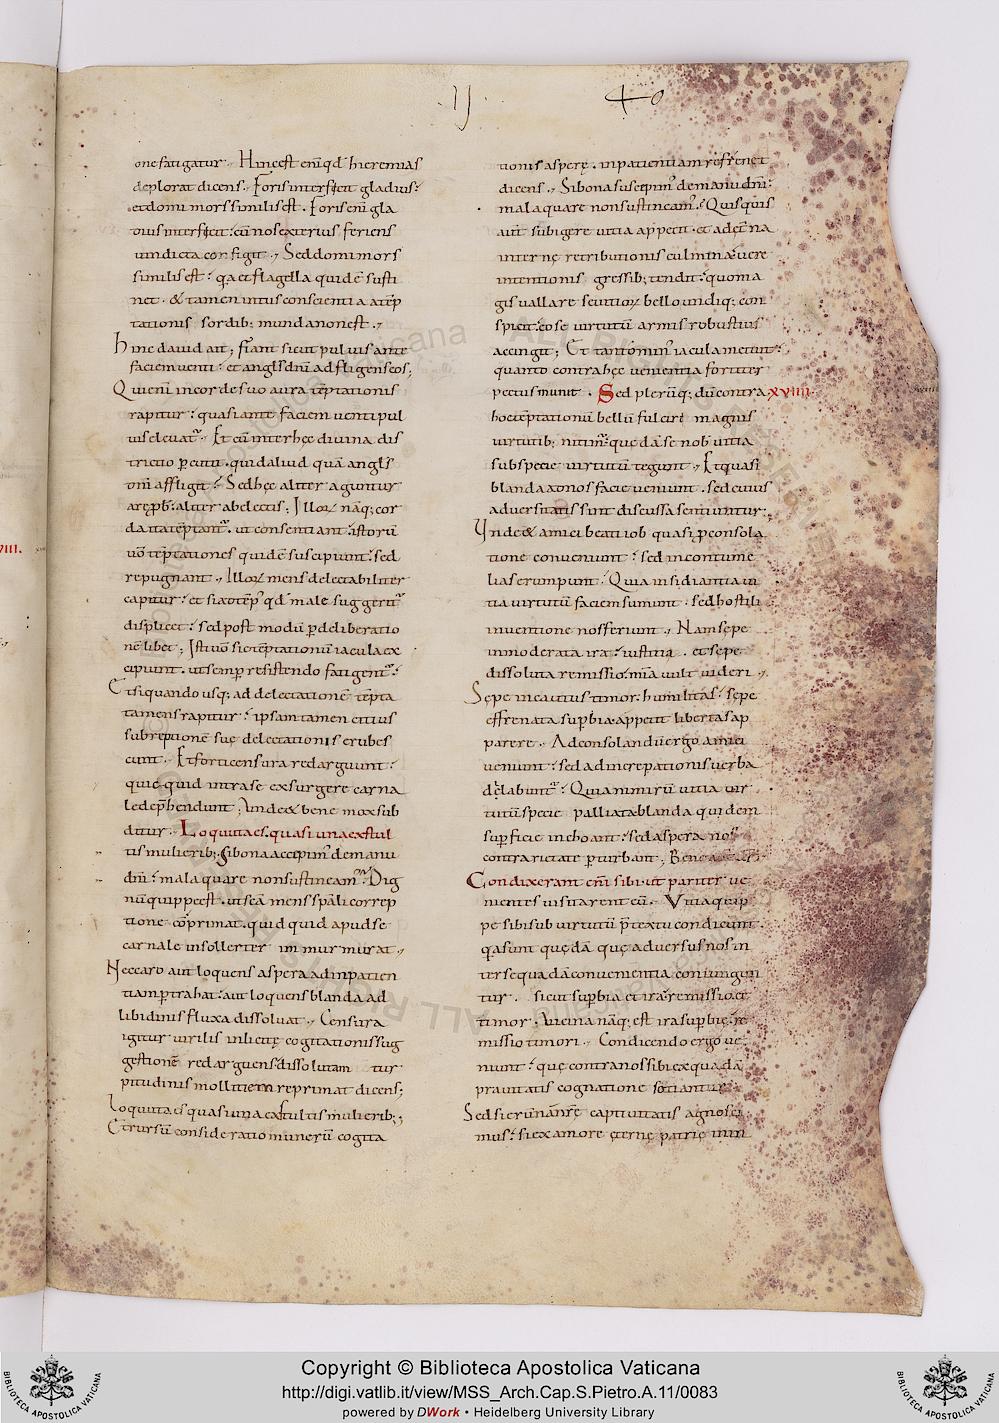 ·IJ· 40
one fatigatur. Hinc est eni qd hieremias
deplorat dicens. Foris interficit gladius:
et domi mors similis est. Foris eni gla
dius interficit: cu nos exterius feriens
vindicta configit. Sed domi mors
similis est: qa et flagella quide susti
net. & tamen intus conscientia a tep
tationis sordib; munda non est.
hinc david ait; fiant sicut pulvis ante
faciem venti: et angls dni adfligens eos;
Quieni in corde suo aura teptationis
rapitur: quasi ante faciem venti pul
vis elevat. Et cu inter hec divina dis
trictio pcutit. quid aliud qua angls
dni affligit? Sed hec aliter aguntur
a repb: aliter ab electis; Illoꝝ naq; cor
da ita teptant. ut consentiant: istoru
vo teptationes quide suscipiunt: sed
repugnant. Illoꝝ mens delectabiliter
capitur: et si ad tep qd male suggerit
displicet: sed post modu p deliberatio
ne libet; Isti vo sic teptationu iacula ex
cipiunt. ut semp resistendo fatigent:
Et si quando usq; ad delectatione tepta
ta mens rapitur: ipsam tamen citius
subreptione sue delectationis erubes
cunt. Et forti censura redarguunt:
quicquid intra se exsurgere carna
le deprehendunt; Unde & bene mox sub
ditur. Locuta es. quasi una ex stul
tis mulierib; Si bona accepim de manu
dni: mala quare non sustineam? Dig
nu quippe est. ut sca mens spali correp
tione coprimat. quidquid apud se
carnale insollerter inmurmurat.
Nec caro aut loquens aspera ad inpatien
tiam ptrahat: aut loquens blanda ad
libidinis fluxa dissolvat. Censura
igitur virilis inlicite cogitationis sug
gestione redarguens: dissolutam tur
pitudinis mollitiem reprimat dicens;
Locuta es quasi una ex stultis mulierib;
Et rursu consideratio muneru cogita
tionis aspere. inpatientiam refrenet
dicens. Si bona suscepim de manu dni:
mala quare non sustineam? Quisquis
aut subigere vitia appetit. et ad eterna
interne retributionis culmina: vere
intentionis gressib; tendit: quo ma
gis vallare se vitioꝝ bello undiq; con
spicit: eo se virtutu armis robustius
accingit; Et tanto min iacula metuit:
quanto contra hec venientia fortiter
pectus munit. Sed pleruq; du contra xviiii.
hoc teptationu bellu fulciri magnis
virtutib; nitim: que da se nob vitia
sub specie virtutum tegunt. Et quasi
blanda ad nos facie veniunt. sed cuius
adversitatis sint discussa sentiuntur:
Unde & amici beati iob quasi p consola
tione conveniunt: sed in contume
lias erumpunt: Quia insidiantia vi
tia virtutu faciem sumunt: sed hostili
inventione nos feriunt. Nam sepe
inmoderata ira: iustitia. et sepe
dissoluta remissio: mia vult videri.
Sepe incautus timor. humilitas: sepe
effrenata supbia. appetit libertas ap
parere. Ad consolandu ergo amici
veniunt: sed ad increpationis verba
dilabunt: Quia nimiru vitia vir
tutu specie palliata blanda quidem
supficie inchoant: sed aspera nos
contrarietate pturbant; Bene
Condixerant eni sibi. ut pariter ve
nientes visitarent eu. Vitia quip
pe sibi sub virtutu ptextu condicunt.
qa sunt queda que adversus nos in
ter se quada convenientia coniungun
tur. sicut supbia et ira: remissio et
timor; vicina naq; est ira supbie: re
missio timori. Condicendo ergo ve
niunt: que contra nos sibi ex quada
pravitatis cognatione sotiantur:
Sed si erunane captivitatis agnosci
mus: si ex amore eterne patrie inin